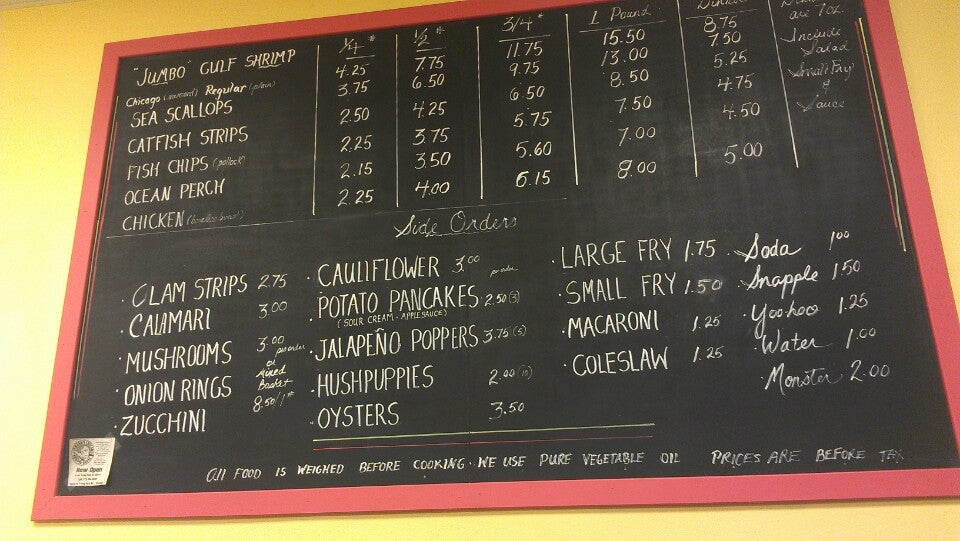 1/4 # 1/2 # 3/4 # 1 Pound
"JUMBO" GULF SHRIMP 4.25 7.75 11.75 15.50 8.75
are 7oz.
Chicago Regular (plain)
SEA SCALLOPS 3.75 6.50 9.75 13.00 7.50
Include
Salad
CATFISH STRIPS 2.50 4.25 6.50 8.50 5.25
Small Fry
&
FISH CHIPS (pollock) 2.25 3.75 5.75 7.50 4.75
Sauce
OCEAN PERCH 2.15 3.50 5.60 7.00 4.50
CHICKEN (boneless breast) 2.25 4.00 6.15 8.00 5.00
Side Orders
· CLAM STRIPS 2.75
· CALAMARI 3.00
· MUSHROOMS 3.00
per order
or
Mixed
Basket
8.50/1#
· ONION RINGS
· ZUCCHINI
· CAULIFLOWER 3.00 per order
· POTATO PANCAKES 2.50 (3)
(SOUR CREAM - APPLESAUCE)
· JALAPEÑO POPPERS 3.75 (5)
· HUSHPUPPIES 2.00 (10)
· OYSTERS 3.50
· LARGE FRY 1.75
· SMALL FRY 1.50
· MACARONI 1.25
· COLESLAW 1.25
· Soda 1.00
· Snapple 1.50
· Yoohoo 1.25
· Water 1.00
Monster 2.00
Now Open
All FOOD IS WEIGHED BEFORE COOKING · WE USE PURE VEGETABLE OIL PRICES ARE BEFORE TAX